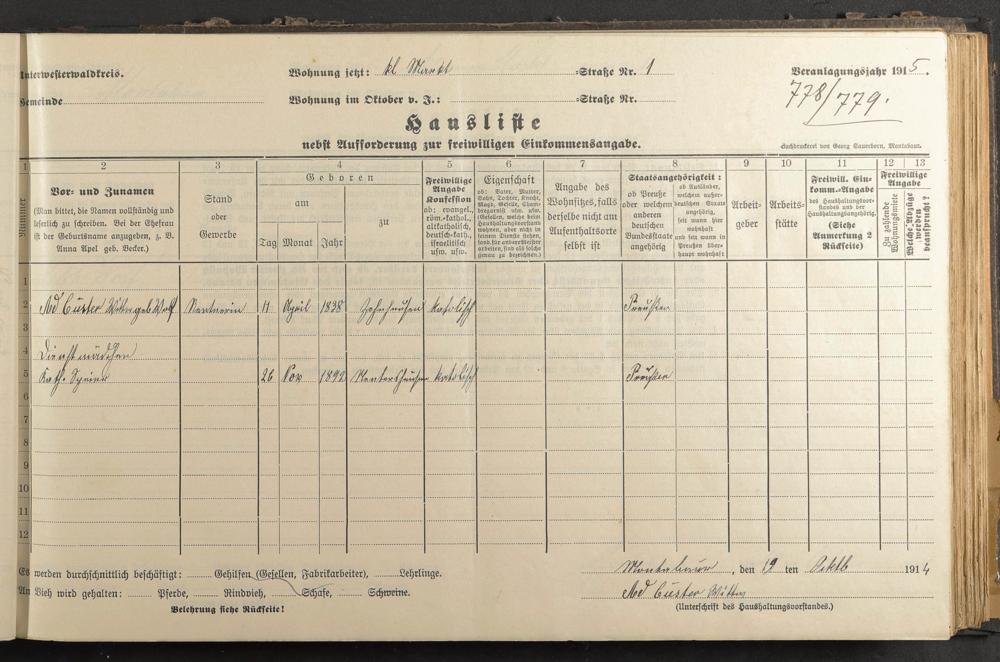 Unterwesterwaldkreis.
Wohnung jetzt: kl Markt =Straße Nr. 1
Veranlagungsjahr 1915.
Gemeinde
Wohnung im Oktober v. J.: =Straße Nr.
778/779.
Hausliste
nebst Aufforderung zur freiwilligen Einkommensangabe.
Buchdruckerei von Georg Sauerborn, Montabaur.
1 2 3 4 5 6 7 8 9 10 11 12 13
Nummer
Vor- und Zunamen
(Man bittet, die Namen vollständig und
leserlich zu schreiben. Bei der Ehefrau
ist der Geburtsname anzugeben, z. B.
Anna Apel geb. Becker.)
Stand
oder
Gewerbe
Geboren
am
zu
Tag Monat Jahr
Freiwillige
Angabe
Konfession
ob: evangel.,
röm.-kathol.,
altkatholisch,
deutsch-kath.,
israelitisch
usw. usw.
Eigenschaft
ob: Vater, Mutter,
Sohn, Tochter, Knecht,
Magd, Geselle, Cham-
bregarnist usw. usw.
(Gesellen, welche beim
Haushaltungsvorstand
wohnen, aber nicht in
seinem Dienste stehen,
sond. für and. Meister
arbeiten, sind als solche
genau zu bezeichnen.)
Angabe des
Wohnsitzes, falls
derselbe nicht am
Aufenthaltsorte
selbst ist
Staatsangehörigkeit:
ob Preuße
oder welchem
anderen
deutschen
Bundesstaate
angehörig
ob Ausländer,
welchem außer-
deutschen Staate
angehörig,
seit wann hier
wohnhaft
und
seit wann in
Preußen über-
haupt wohnhaft
Arbeit-
geber
Arbeits-
stätte
Freiwill. Ein-
komm.-Angabe
des Haushaltungsvor-
standes und der
Haushaltungsangehörig.
(Siehe
Anmerkung 2
Rückseite)
Freiwillige
Angabe
Zu zahlende
Wohnungsmiete
Welche Abzüge
werden
beansprucht?
1
2 Ad Custer Witw geb Wolf Rentnerin 11 April 1838 katolisch Preußen
3
4 Dienstmädchen
5 Kath. Speier 26 Nov 1892 Rentershausen katolisch Preußen
6
7
8
9
10
11
12
Es werden durchschnittlich beschäftigt: Gehilfen (Gesellen, Fabrikarbeiter), Lehrlinge.
An Vieh wird gehalten: Pferde, Rindvieh, Schafe, Schweine.
Belehrung siehe Rückseite!
Montabaur, den 19 ten Oktb 1914
Ad Custer Wittw
(Unterschrift des Haushaltungsvorstandes.)